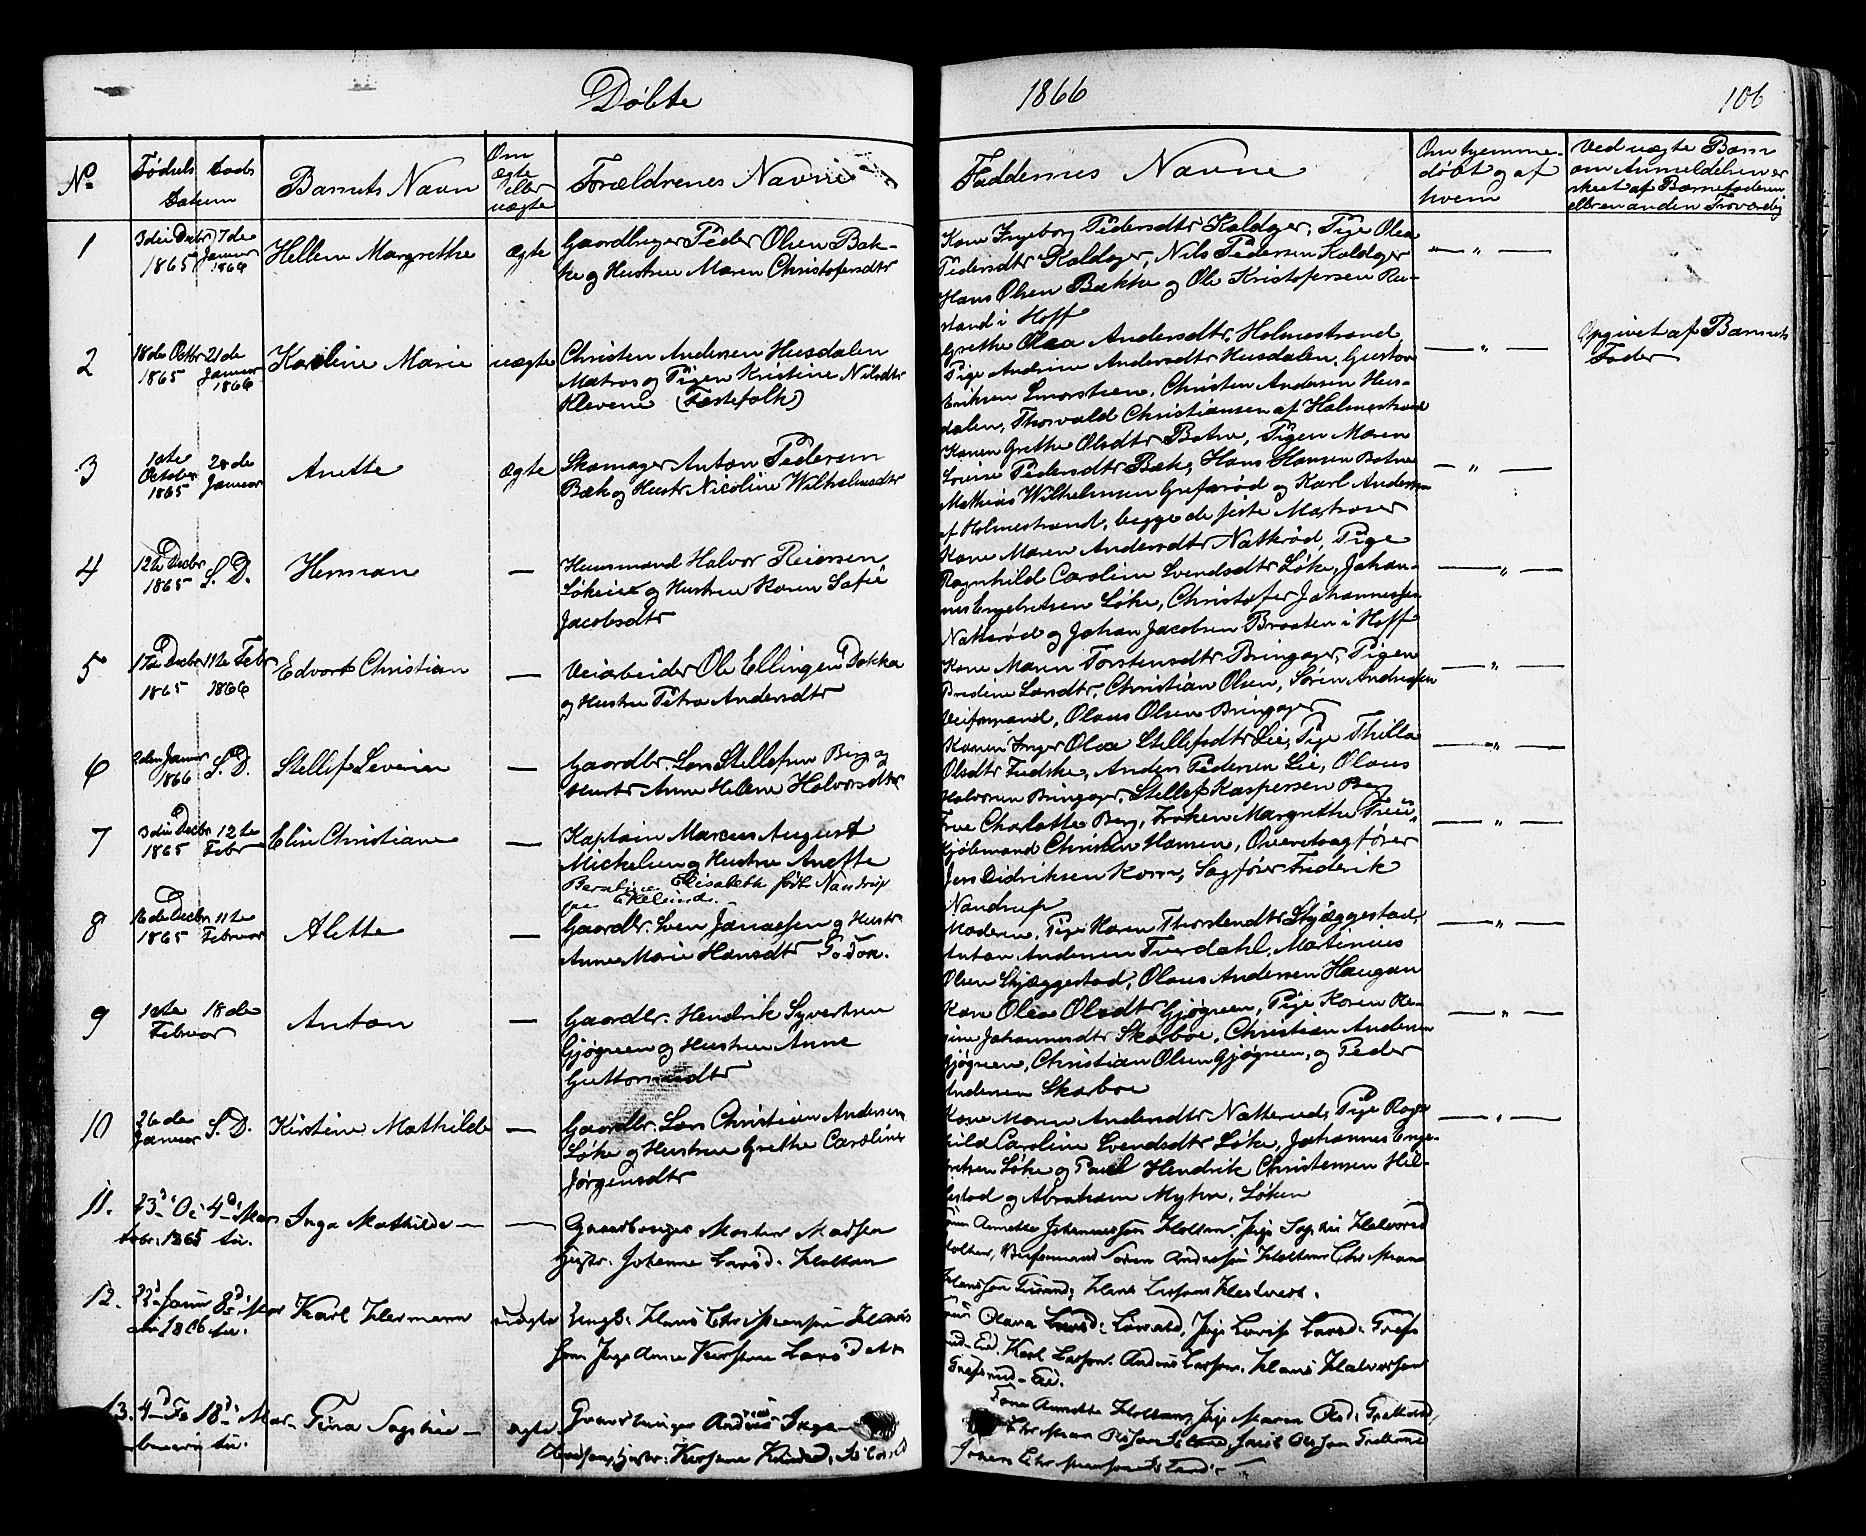 Døbte
1866
106
No
Fødsels Daabs
Datum
Barnets Navn
Om
ægte
eller
uægte
Forældrenes Navne
Faddernes Navne
Om hjemme-
døbt og af
hvem
Ved uægte Børn
om Anmeldelsen er
skeet af Barnefaderen
eller en anden Troværdig
1
3die Decbr 7de
1865 Januar
1866
Hellene Margrethe
ægte
Gaardbruger Peder Olsen Bak-
ke og Hustrue Maren Christofersdtr
Kone Ingeborg Pedersdtr Kaldager, Pige Olea
Pedersdtr Kaldager, Nils Pedersen Kaldager
Hans Olsen Bakke og Ole Kristofersen Ru-
stand i Hoff
2
18de Octbr 21de
1865 Januar
1866
Karoline Marie
uægte
Christen Andersen Husdalen
Matros og Pigen Kristine Nilsdtr
Klevene (Fæstefolk)
Grethe Olea Andersdtr, Holmestrand
Pige Andrine Andersdtr Husdalen, Gustav
Eriksen Smorsteen, Christen Andersen Hus-
dalen, Thorvald Christiansen af Holmestrand
Opgivet af Barnets
Fader
3
1ste 28de
October Januar
1865
Anette
ægte
Skomager Anton Pedersen
Bæk og Hustr Nicoline Wilhelmsdtr
Konen Grethe Olsdtr Botne, Pigen Maren
Lovise Pedersdtr Bæk, Hans Hansen Botne
Mathias Wilhelmsen Grefsrød og Karl Andersen
af Holmestrand, begge de siste Matroser
4
12te Decbr S.D.
1865
Herman
—
Huusmand Halvor Reiersen
Løkeie og Hustrue Karen Sofie
Jacobsdtr
Kone Maren Andersdtr Natterød, Pige
Ragnhild Caroline Svendsdtr Løke, Johan-
nes Engebretsen Løke, Christofer Johannessen
Natterød og Johan Jacobsen Braaten i Hoff
5
17de Decbr 11te Febr
1865 1866
Edvart Christian
—
Veiarbeider Ole Ellingsen Dokka
og Hustrue Petra Andersdtr
Kone Maren Torstensdtr Bringager, Pigen
Larsdtr, Christian Olsen, Søren Andreasen
Veiformand, Olaus Olsen Bringager
6
2den Januar S.D.
1866
Stellef Severin
—
Gaardbr. Lars Stellefsen Berg og
Hustr Anne Helene Halvorsdtr
Konen Inger Olea Stellefsdtr Lie, Pige Thilla
Olsdtr Fudske, Anders Pedersen Lie, Olaus
Halvorsen Bringager, Stellef Kaspersen Berg
7
3die Decbr 12te
1865 Febr
Elise Christiane
—
Kaptain Marcus August
Michelsen og Hustrue Anette
Elisabeth født Nandrup
paa Ekelund.
Frue Charlotte Berg, Frøken Margrethe
Kjøbmand Christen Hansen, Overretssagfører
Jens Didriksen Korn, Sagfører Frederik
Nandrup
8
16de Decbr 11te
1865 Februar
Alette
—
Gaardbr. Sven Jonassen og Hustr
Anne Marie Hansdtr
Moderen, Pige Karen Thorstensdtr Skjæggestad,
Anton Andersen Tverdahl, Martinius
Olsen Skjæggestad, Olaus Andersen Haugan
9
1ste 18de
Februar
Anton
—
Gaardbr. Hendrik Syvertsen
Gjøgreen og Hustrue Anne
Guttormsdtr
Kone Olea Olsdtr Gjøgreen, Pige Karen Re-
gine Johannesdtr Skarboe, Christian Andersen
Gjøgreen, Christian Olsen Gjøgreen, og Peder
Andersen Skarboe
10
26de S.D.
Januar
Kirstine Mathilde
—
Gaardbr. Lars Christian Andersen
Løke og Hustrue Grethe Caroline
Jørgensdtr
Kone Maren Andersdtr Natterud, Pige Ragn-
hild Caroline Svendsdtr Løke, Johannes Enge-
bretsen Løke og Paul Hendrik Christensen Hil-
lestad og Abraham Myhre, Løken
11.
23d Oc 4d Mar
tobr: 1865 ts.
Inga Mathilde
—
Gaardbruger Morten Madsen
Hustr. Johanne Larsd. Holtan
Annette Johannessen Holtan, Pige Sophie
Holtan, Veiformand Søren Andersen Holtan
Hans Larsen
12.
22d Janu 8d Mar
ari 1866 ts.
Karl Hermann
uægte
Ungk: Hans Christiansen
Pige Anne Kirstine Larsdatr
Olava Larsd:, Pige Lovise Larsd: Grefs
rud-Eie, Karl Larsen, Andreas Larsen, Hans Halvorsen
Grefsrud-Eie.
13.
4d Fe 18d Mar
bruari ts.
Tina Sophie
ægte
Gaardbruger Andreas Inge
Hustr: Kirstine
Kone Annette Holtan, Pige Maren Olsd:
Christian Olsen, Jacob Olsson
Johan Christiansen